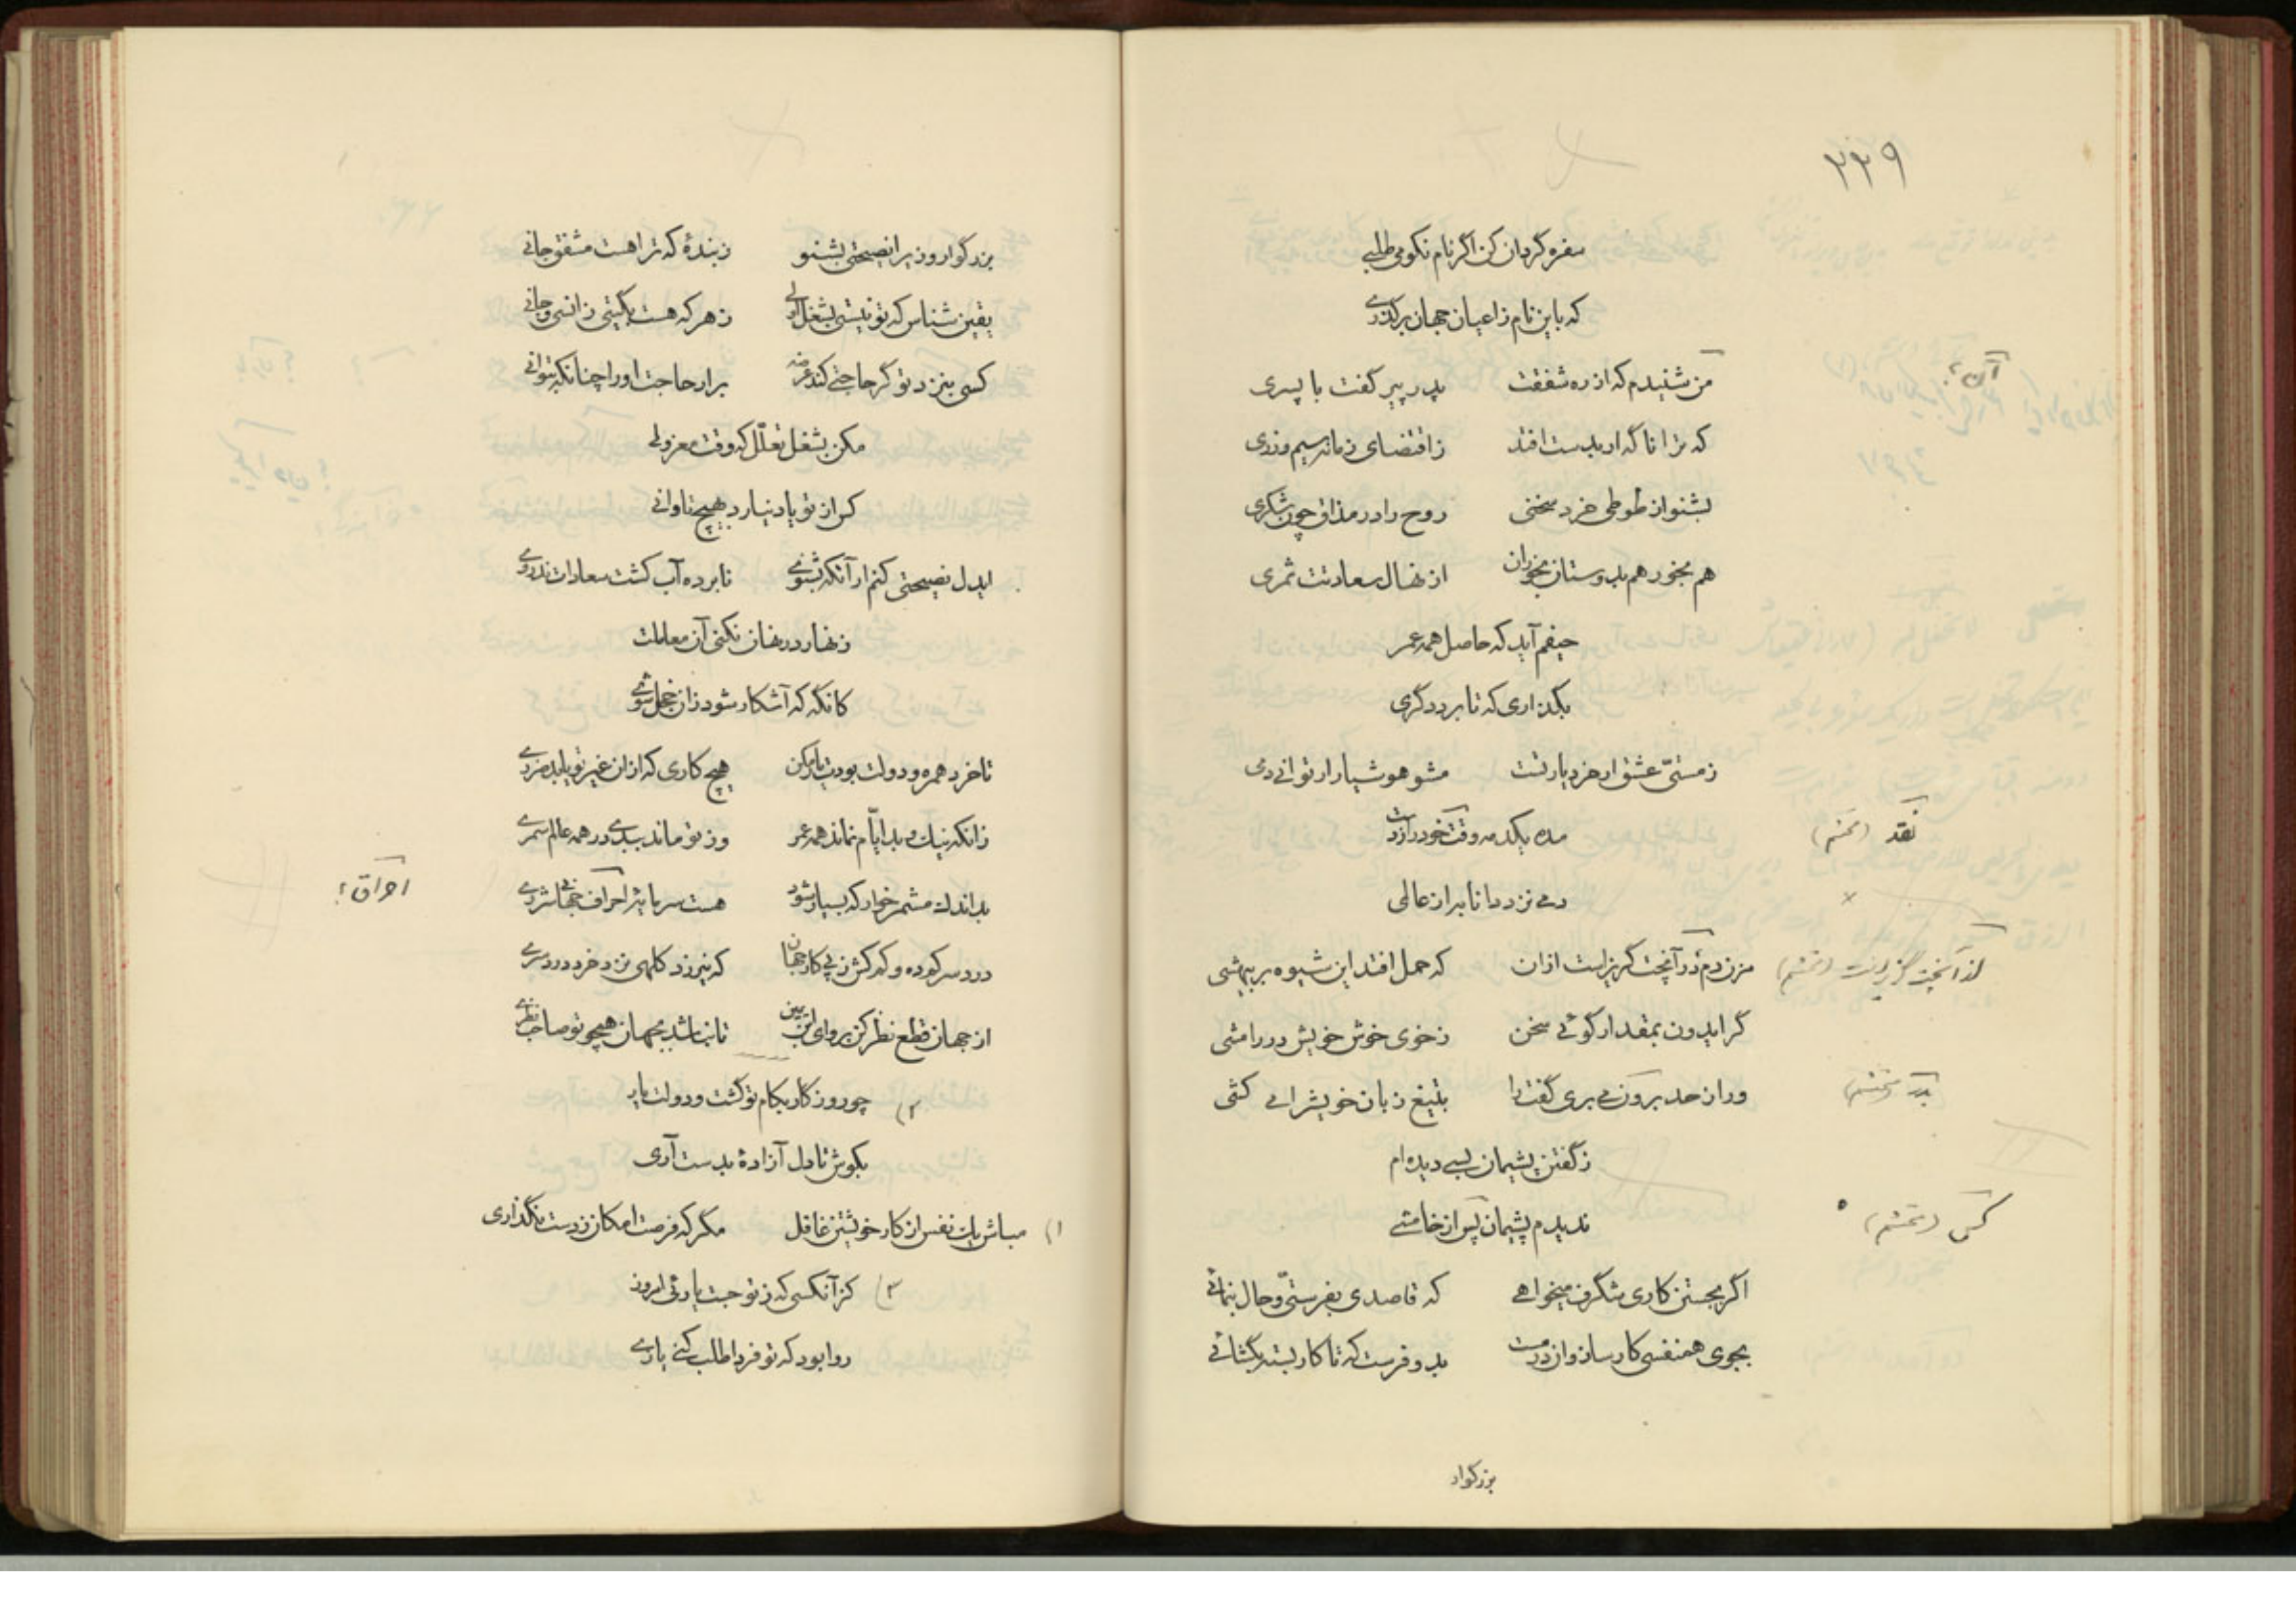 ۲۳۹
سفره گردان کن اگر نام نکو می طلبی
که باین نام ز اعیان جهان برگذری
من شنیدم که از ره شفقت پدر پیر گفت با پسری
آن؟
که ترا ناگه ار بدست افتد ز اقتضای زمانه سیم و زری
بشنو از طوطی خرد سخنی روح را در مذاق چون شکری
هم بخور هم بدوستان بخوران از نهال سعادتت ثمری
حیفم آید که حاصل همه عمر
بگذاری که تا برد دگری
ز مستیّ عشق ار خرد یار تست مشو هوشیار ار توانی دمی
مده یکدمه وقت خود را ز دست
نقد
دمی نزد دانا به از عالمی
مزن دم در آنچت گریز است ازان که حمل افتد این شیوه بر بیهشی
گر ایدون بمقدار گوئی سخن ز خوی خوش خویش در رامشی
ور از حد برون می بری گفت را بتیغ زبان خویش را می کشی
ز گفتن پشیمان بسی دیده ام
ندیدم پشیمان پس از خامشی
کس
اگر بجستن کاری شگرف میخواهی که قاصدی بفرستیّ و حال بنمائی
بجوی همنفسی کارساز و از در مت بدو فرست که تا کار بسته بگشائی
بزرگوار
بزرگوار وزیرا نصیحتی بشنو ز بندۀ که ترا هست مشفق جانی
یقین شناس که تو نیستی بشغل اولی ز هر که هست بگیتی ز انسی و جانی
کسی بنزد تو گر حاجتی کند عرضه برار حاجت او را چنانکه بتوانی
مکن بشغل تعلّل که وقت معزولی
کس از تو یاد نیارد بهیچ تاوانی
ایدل نصیحتی کنم ار آنکه بشنوی نابرده آب کشت سعادات ندروی
زنهار در نهان نکنی آن معاملت
کانگه که آشکار شود زان خجل شوی
تا خرد همره و دولت بودت یار مکن هیچ کاری که ازان غیر تو یابد مزدی
زانکه نیک و بد ایّام نماند همه عمر وز تو ماند ببدی در همه عالم سمری
بد اندک مشمر خوار که بسیار شود هست سرمایۀ احراق جهانی شرری
احراق؟
دردسر کم ده و کم کش ز پی کار جهان که نیرزد کلهی نزد خرد دردسری
از جهان قطع نظر کن بروای ابن یمین تا نباشد بجهان هیچو تو صاحب نظری
۲) چو روزگار بکام تو گشت و دولت یار
بکوش تا دل آزادۀ بدست آری
۱) مباش یک نفس از کار خویشتن غافل مگر که فرصت امکان ز دست نگذاری
۳) کز آنکسی که ز تو جست یارئی امروز
روا بود که تو فردا طلب کنی یاری